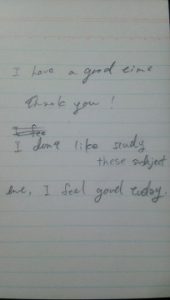 I have a good time
thank you!
I fee
I don't like study
these subject
but, I feel good today.